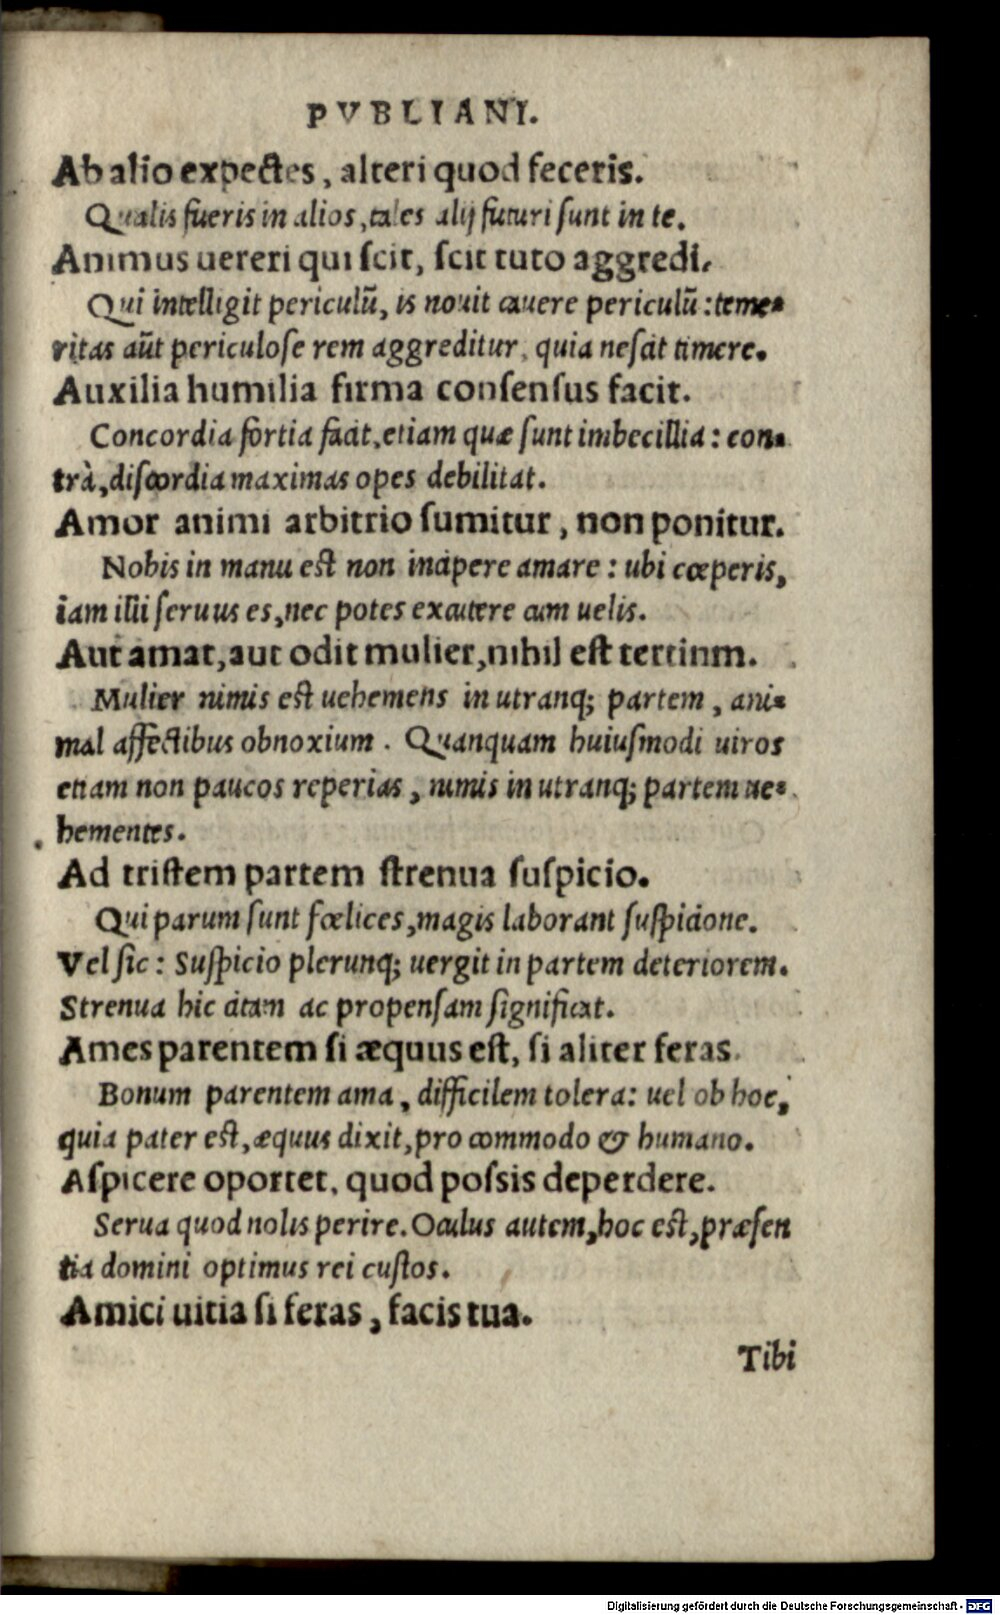 PVBLIANI.
Ab alio expectes, alteri quod feceris.
Qualis fueris in alios, tales alij futuri sunt in te.
Animus uereri qui scit, scit tuto aggredi.
Qui intelligit periculū, is nouit cauere periculū: teme-
ritas aūt periculose rem aggreditur, quia nescit timere.
Auxilia humilia firma consensus facit.
Concordia fortia facit, etiam quæ sunt imbecillia: con-
trà, discordia maximas opes debilitat.
Amor animi arbitrio sumitur, non ponitur.
Nobis in manu est non incipere amare: ubi cœperis,
iam illi seruus es, nec potes excutere cum uelis.
Aut amat, aut odit mulier, nihil est tertium.
Mulier nimis est uehemens in utranq; partem, ani-
mal affectibus obnoxium. Quanquam huiusmodi uiros
etiam non paucos reperias, nimis in utranq; partem ue-
hementes.
Ad tristem partem strenua suspicio.
Qui parum sunt fœlices, magis laborant suspicione.
Vel sic: Suspicio plerunq; uergit in partem deteriorem.
Strenua hic citam ac propensam significat.
Ames parentem si æquus est, si aliter feras.
Bonum parentem ama, difficilem tolera: uel ob hoc,
quia pater est, æquus dixit, pro commodo & humano.
Aspicere oportet, quod possis deperdere.
Serua quod nolis perire. Oculus autem, hoc est, præsen
tia domini optimus rei custos.
Amici uitia si feras, facis tua.
Tibi
Digitalisierung gefördert durch die Deutsche Forschungsgemeinschaft - DFG